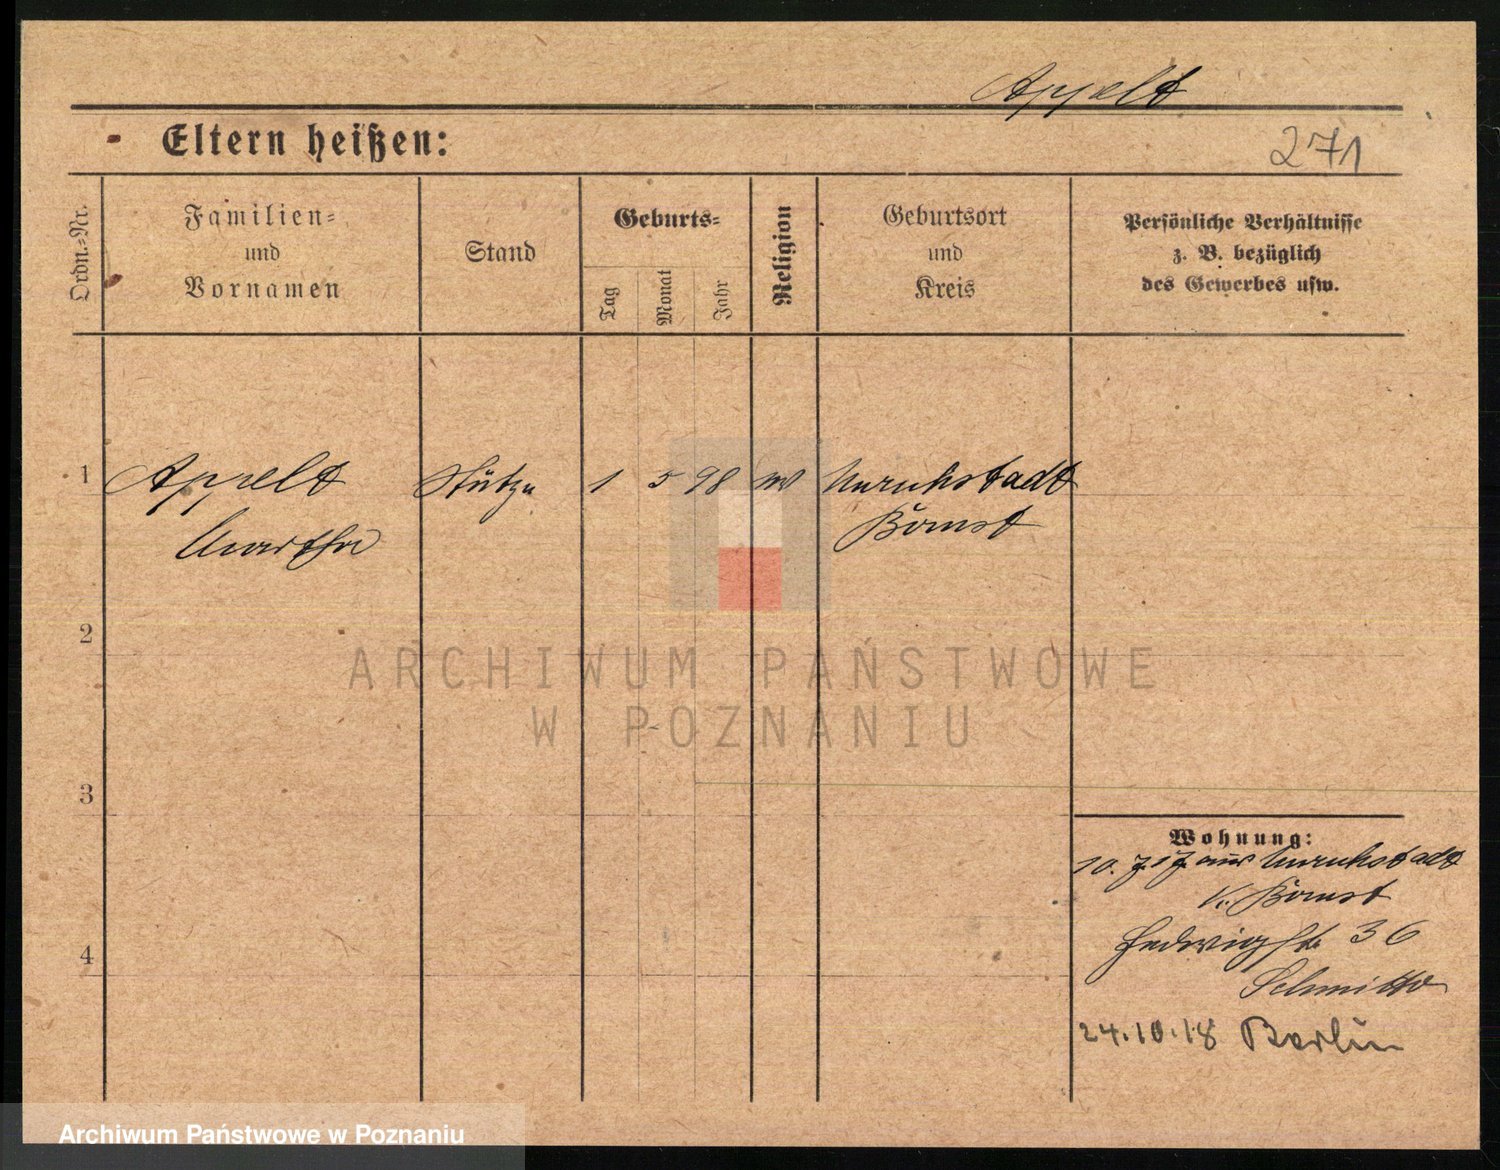 Appelt
Eltern heißen:
271
Ordn.-Nr.
Familien-
und
Vornamen
Stand
Geburts-
Tag
Monat
Jahr
Religion
Geburtsort
und
Kreis
Persönliche Verhältnisse
z. B. bezüglich
des Gewerbes usw.
1 Appelt Stütze 1 5 98 Unruhstadt
Martha Bomst
2
ARCHIWUM PAŃSTWOWE
W POZNANIU
3
Wohnung:
10. 7. 17 aus Unruhstadt
Kr. Bomst
Hedwigstr. 36
4
24.10.18 Berlin
Archiwum Państwowe w Poznaniu